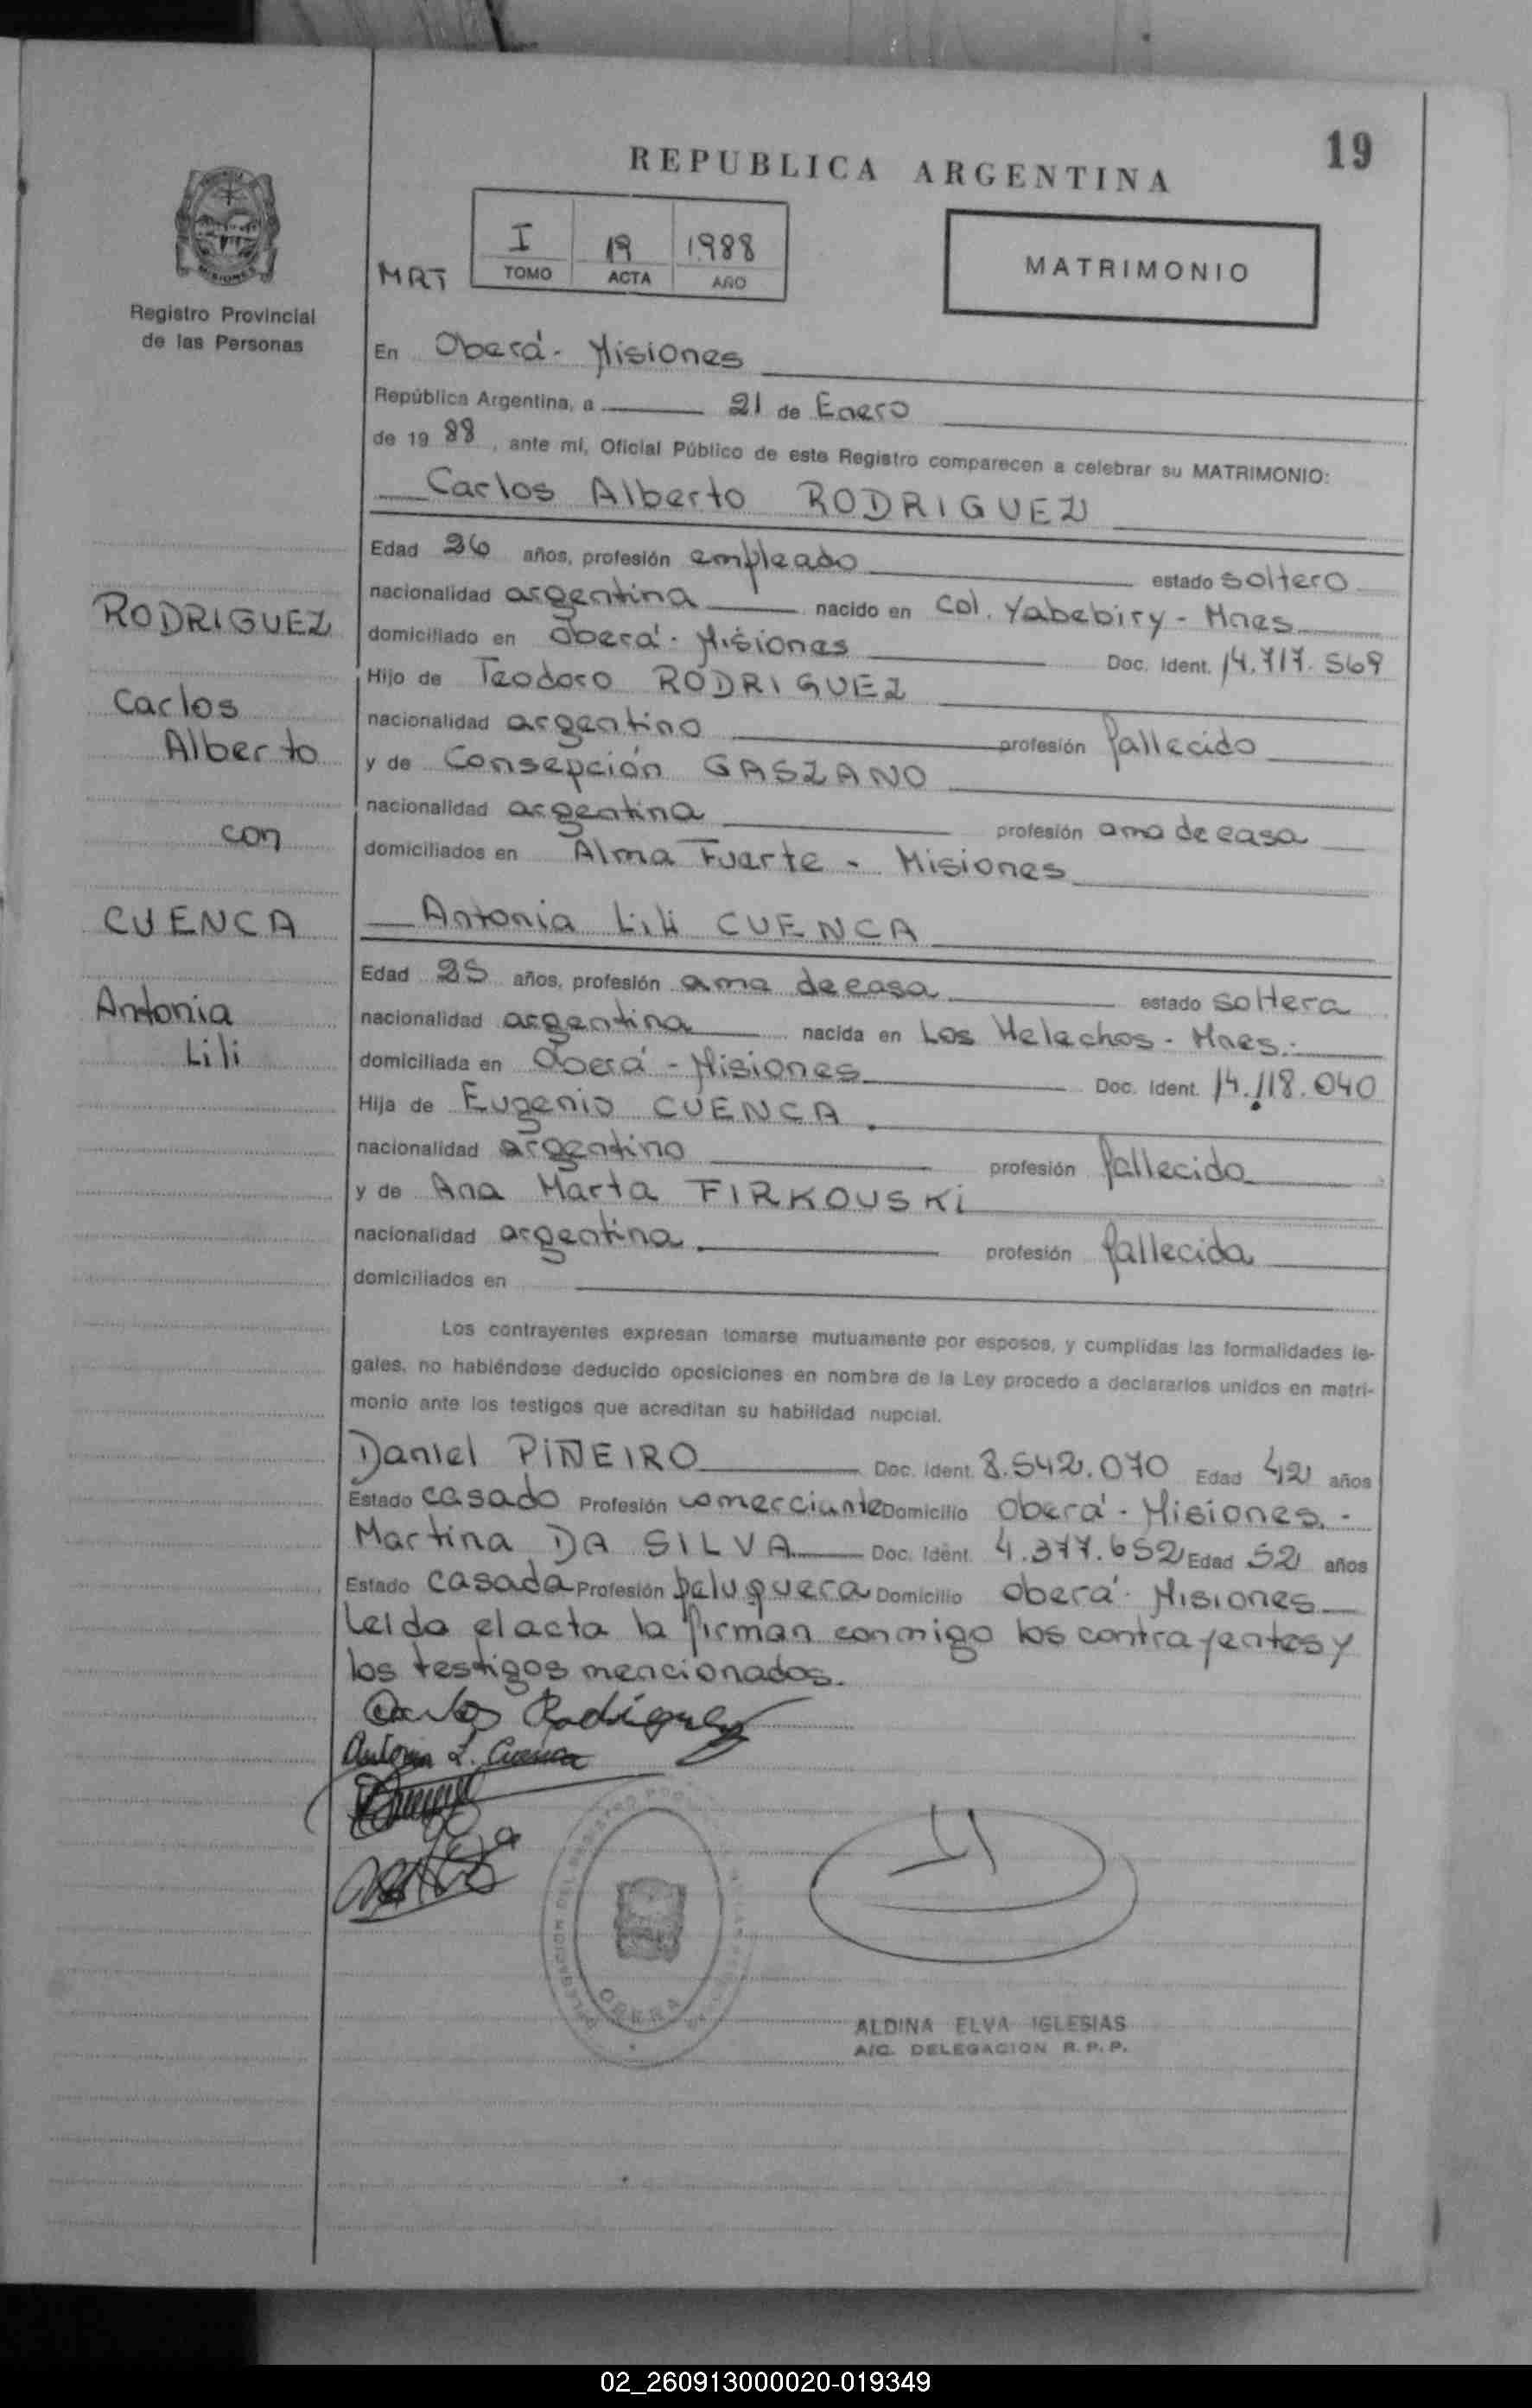 19
REPUBLICA ARGENTINA
I 19 1988
TOMO ACTA AÑO
MRT
MATRIMONIO
MISIONES
Registro Provincial
de las Personas
En Oberá - Misiones
República Argentina, a 21 de Enero
de 19 88, ante mí, Oficial Público de este Registro comparecen a celebrar su MATRIMONIO:
Carlos Alberto RODRIGUEZ
Edad 26 años, profesión empleado estado soltero
nacionalidad argentina nacido en Col. Yabebiry - Mnes
domiciliado en Oberá - Misiones Doc. Ident. 14.717.569
Hijo de Teodoro RODRIGUEZ
nacionalidad argentino profesión fallecido
y de Consepción GASZANO
nacionalidad argentina profesión ama de casa
domiciliados en Alma Fuerte - Misiones
RODRIGUEZ
Carlos
Alberto
con
CUENCA
Antonia
Lili
Antonia Lili CUENCA
Edad 25 años, profesión ama de casa estado soltera
nacionalidad argentina nacida en Los Helechos - Mnes.
domiciliada en Oberá - Misiones Doc. Ident. 14.118.040
Hija de Eugenio CUENCA
nacionalidad argentino profesión fallecido
y de Ana Marta FIRKOUSKi
nacionalidad argentina profesión fallecida
domiciliados en
Los contrayentes expresan tomarse mutuamente por esposos, y cumplidas las formalidades le-
gales, no habiéndose deducido oposiciones en nombre de la Ley procedo a declararlos unidos en matri-
monio ante los testigos que acreditan su habilidad nupcial.
Daniel PIÑEIRO Doc. Ident. 8.542.070 Edad 42 años
Estado casado Profesión comerciante Domicilio Oberá - Misiones. -
Martina DA SILVA Doc. Ident. 4.377.652 Edad 52 años
Estado casada Profesión peluquera Domicilio Oberá - Misiones
Leida el acta la firman conmigo los contrayentes y
los testigos mencionados.
Carlos Rodríguez
Antonia L. Cuenca
OBERA
ALDINA ELVA IGLESIAS
A/C. DELEGACION R.P.P.
02_260913000020-019349